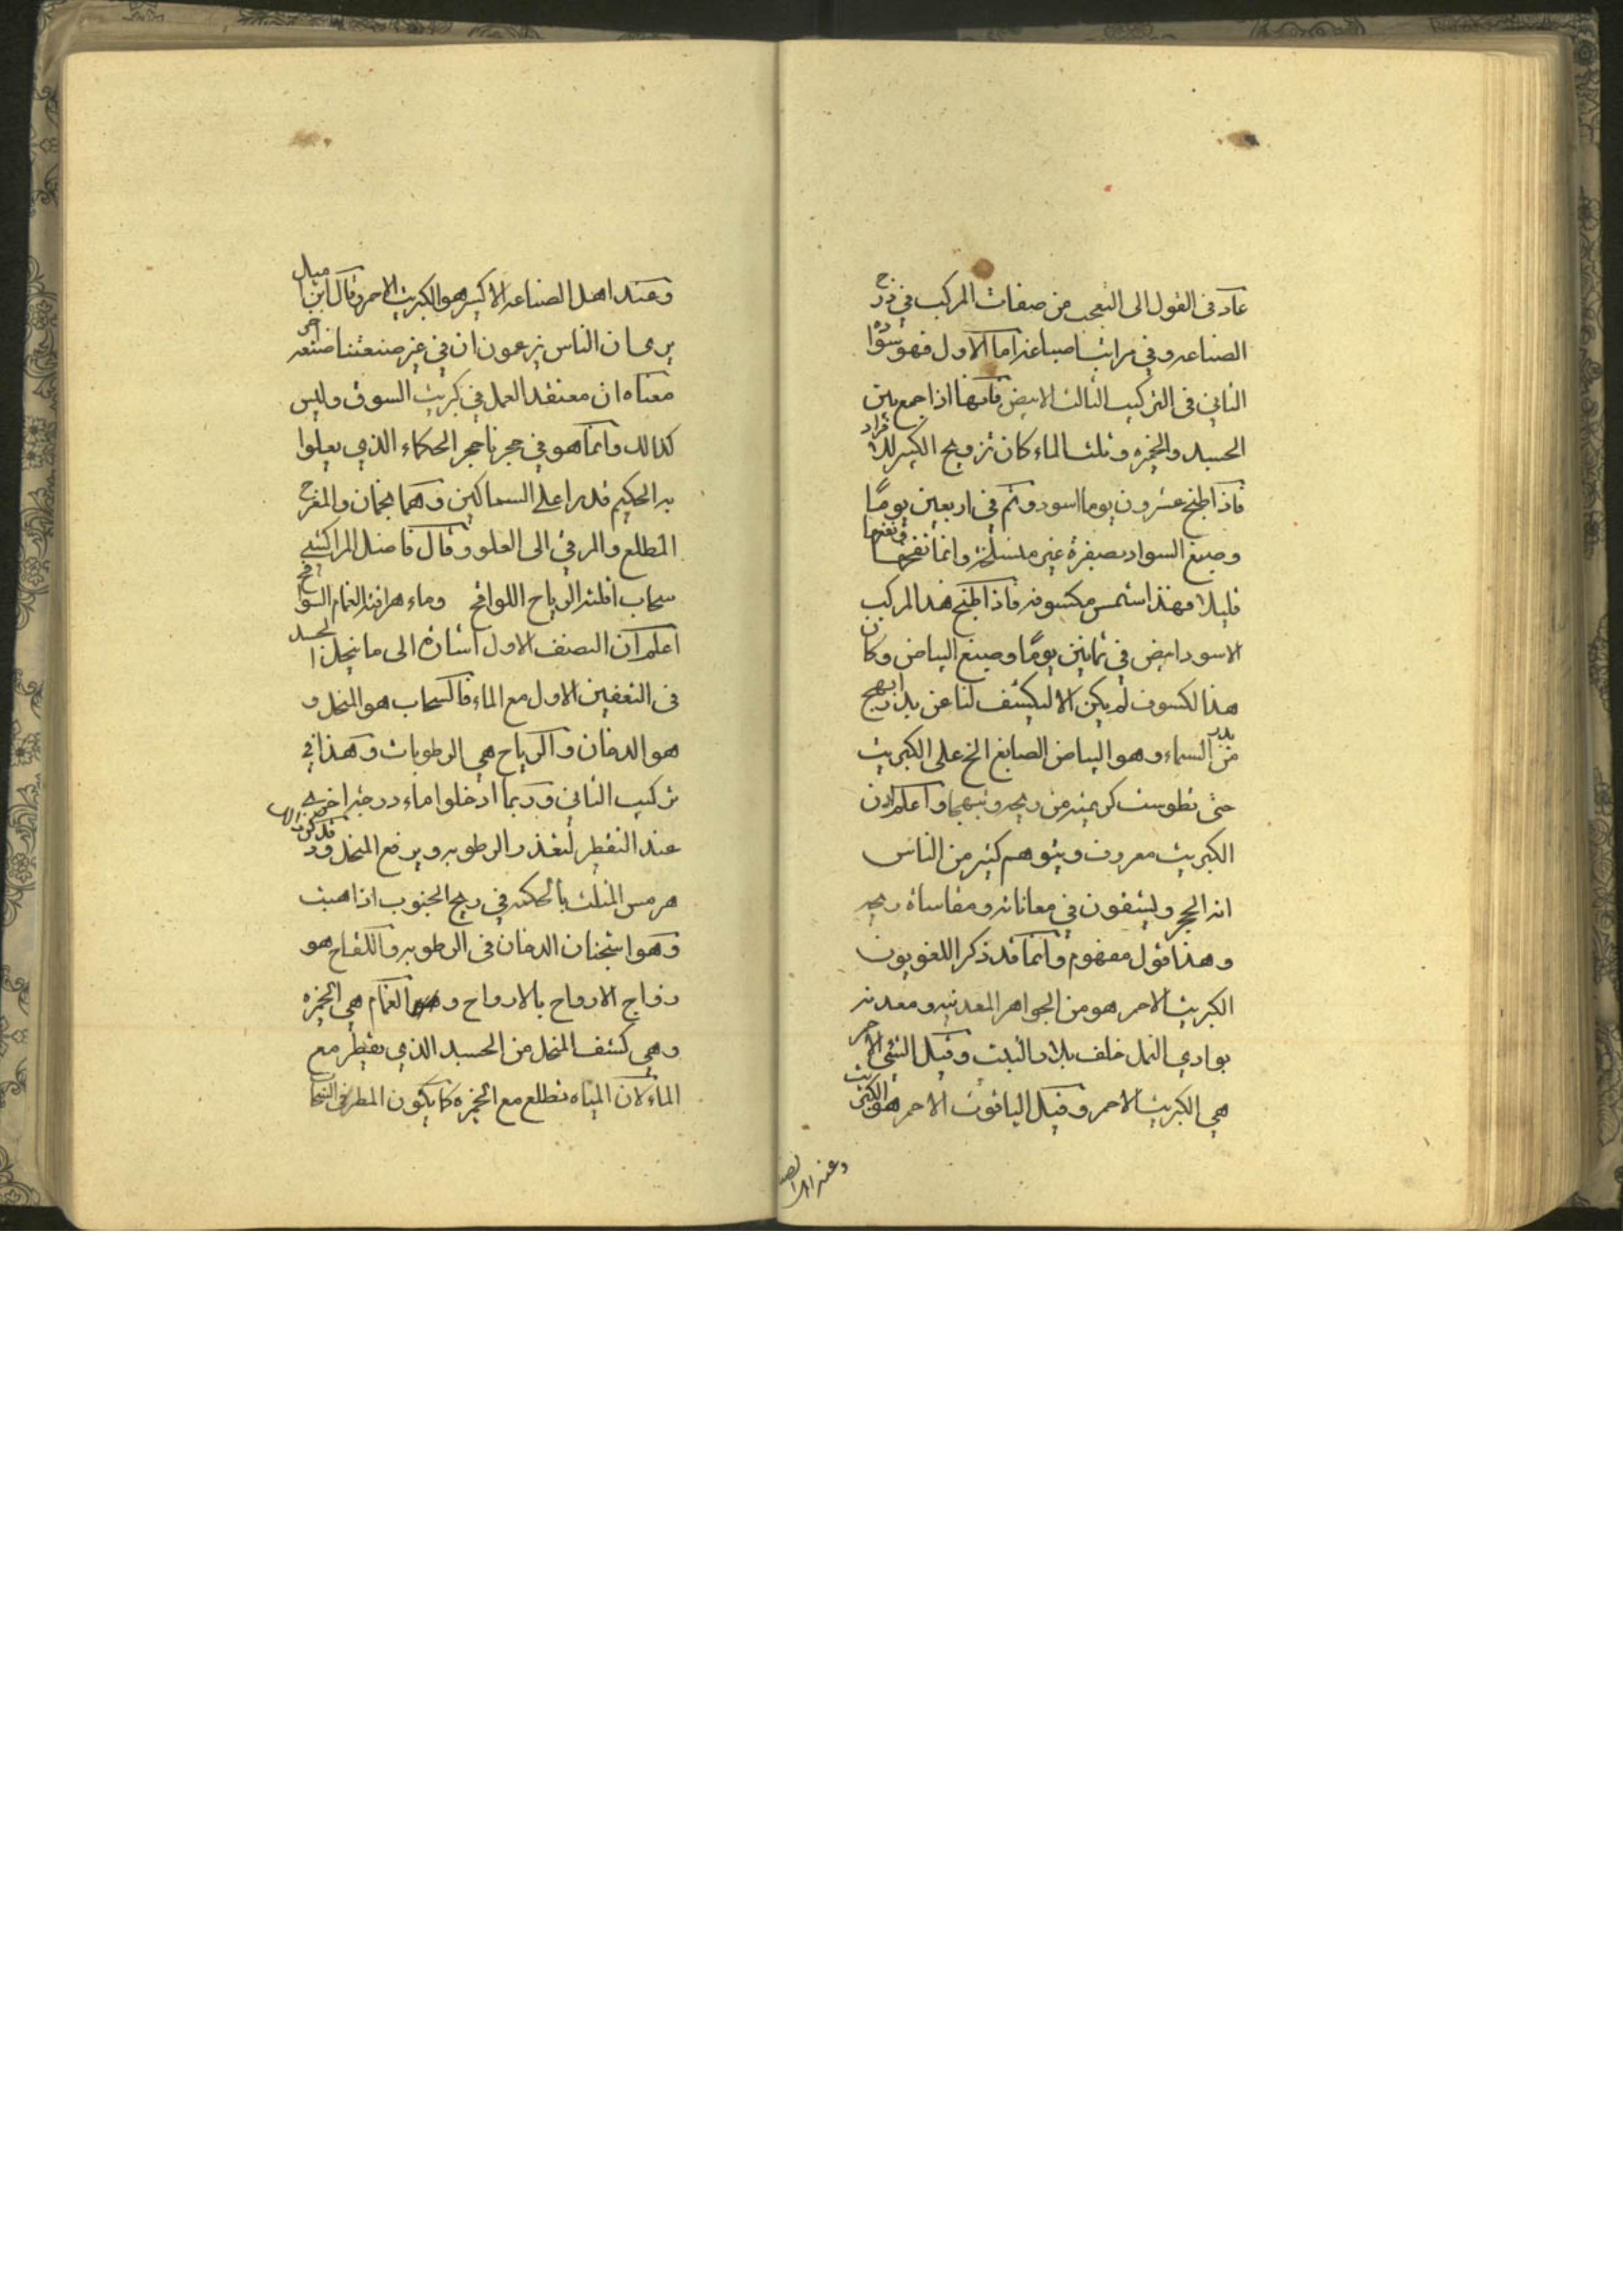 عاد في القول الى التعجب من صفات المركب في درج
الصناعه وفي مراتب اصباغه اما الاول فهو سواده
الثاني في التركيب الثالث الابيض فانها اذا جمع بين
الجسد والخمره وثلث الماء كان تزويج الكبير للافراد
فاذا طبخ عشرون يوما اسود وتم في اربعين يومًا
وصبغ السواد بصفرة غير منسلخه وانما
قليلا فهذا شمس مكسوفه فاذا طبخ هذا المركب
الاسود ابيض في ثمانين يومًا وصبغ البياض وكان
هذا لكسوف لم يكن الا ليكشف لنا عن بدر ابهج
من بدر السماء وهو البياض الصابغ الخ على الكبريت
حتى من ريحه واعلم ان
الكبريت معروف ويتوهم كثير من الناس
انه الحجر ويشقون في معاناته ومقاساة ريحه
وهذا قول مفهوم وانما قد ذكر اللغويون
الكبريت الاحمر هو من الجواهر المعدنيه ومعدنه
بوادي النمل خلف بلاد التبت وقيل الشي الاحمر
هي الكبريت الاحمر وقيل الياقوت الاحمر هو الكبريت
وعند اهل الصـ
وعند اهل الصناعه الاكسير هو الكبريت الاحمر وقال ابن اميال
يرى ان الناس يزعمون ان في غير صنعتنا صنعه اخرى
معناه ان معتقد العمل في كبريت السوق وليس
كذالك وانما هو في حجرنا حجر الحكماء الذي يعلوا
به الحكيم قدرا على السماكين وهما نجمان والمفرج
المطلع والمرقي الى العلو وقال فاضل المراكشي
سحاب اقلته الرياح اللواقح وماء هراقته الغمام السوافح
اعلم ان النصف الاول اشارة الى ما ينحل الجسد
في التعفين الاول مع الماء فالسحاب هو المنحل و
هو الدخان والرياح هي الرطوبات وهذا في
تركيب الثاني وربما ادخلوا ماء درجته اخرى
عند التقطير لتغذر الرطوبه ويرفع المنحل وقد ذكر
هرمس المثلث بالحكمه في ريح الجنوب اذا هبت
وهو استجنان الدخان في الرطوبه واللقاح هو
زواج الارواح بالارواح والغمام هي الخمره
وهي كشف المنحل من الجسد الذي يقطر مع
الماء لان المياه تطلع مع الخمره كما يكون المطر في السحاب